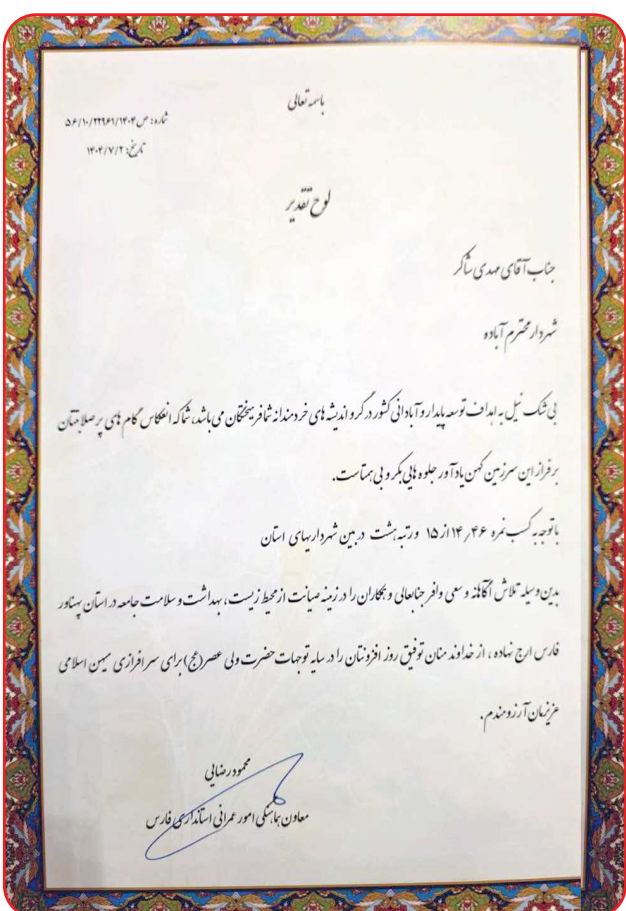 باسمه تعالی
شماره: ص/۵۶/۱۰/۲۲۹۶۱/۱۴۰۴
تاریخ: ۱۴۰۴/۷/۲
لوح تقدیر
جناب آقای مهدی شاکر
شهردار محترم آباده
بی شک نیل به اهداف توسعه پایدار و آبادانی کشور در گرو اندیشه های خردمندانه شما فرهیختگان می باشد، شما که انعکاس گام های پر صلابتتان
بر فراز این سرزمین کهن یادآور جلوه هایی بکر و بی همتاست.
باتوجه به کسب نمره ۱۴٫۴۶ از ۱۵ و رتبه هشت در بین شهرداریهای استان
بدین وسیله تلاش آگاهانه و سعی وافر جنابعالی و همکاران را در زمینه صیانت از محیط زیست، بهداشت و سلامت جامعه در استان پهناور
فارس ارج نهاده، از خداوند منان توفیق روز افزونتان را در سایه توجهات حضرت ولی عصر (عج) برای سرافرازی میهن اسلامی
عزیزمان آرزومندم.
محمود رضایی
معاون هماهنگی امور عمرانی استانداری فارس